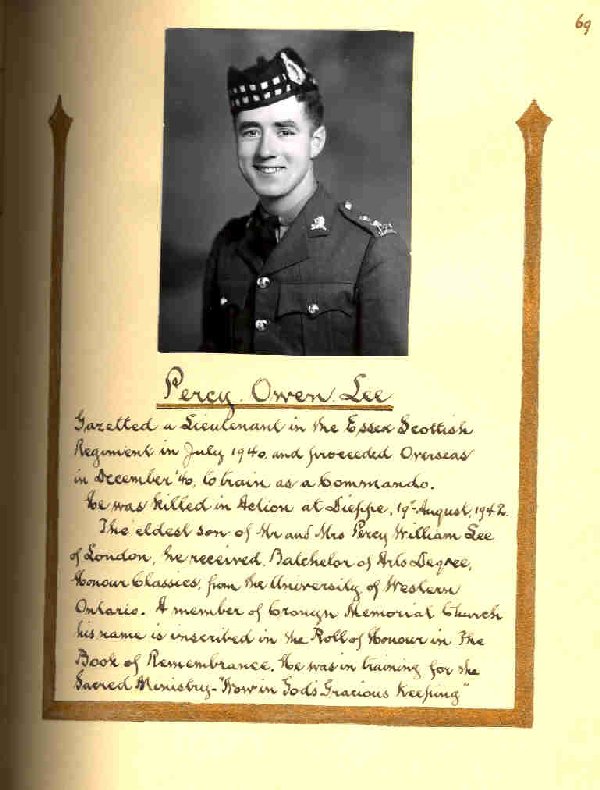 69
Percy Owen Lee
Gazetted a Lieutenant in the Essex Scottish
Regiment in July 1940, and proceeded Overseas
in December '40, to train as a Commando.
He was killed in Action at Dieppe, 19th August, 1942.
The eldest son of Mr and Mrs Percy William Lee
of London, he received, Batchelor of Arts Degree,
Honour Classics, from the University of Western
Ontario. A member of Cronyn Memorial Church
his name is inscribed in the Roll of Honour in The
Book of Remembrance. He was in training for the
Sacred Ministry - "Now in God's Gracious Keeping"